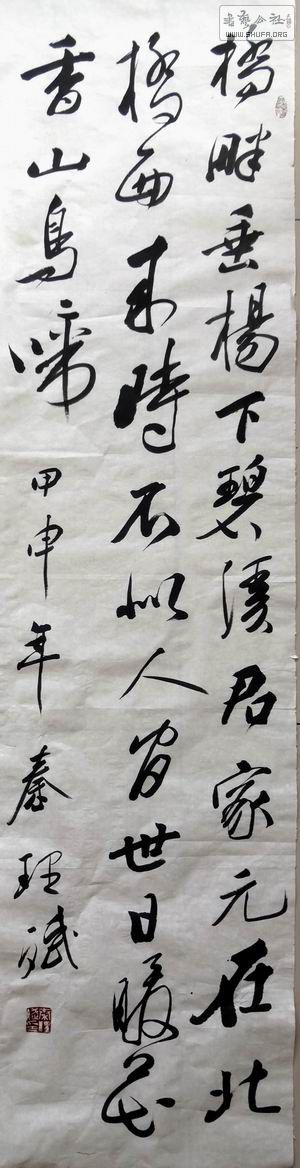 橋畔垂楊下碧溪君家元在北
橋西來時不似人間世日暖花
香山鳥啼
甲申年 秦理斌
書藝公社
WWW.SHUFA.ORG